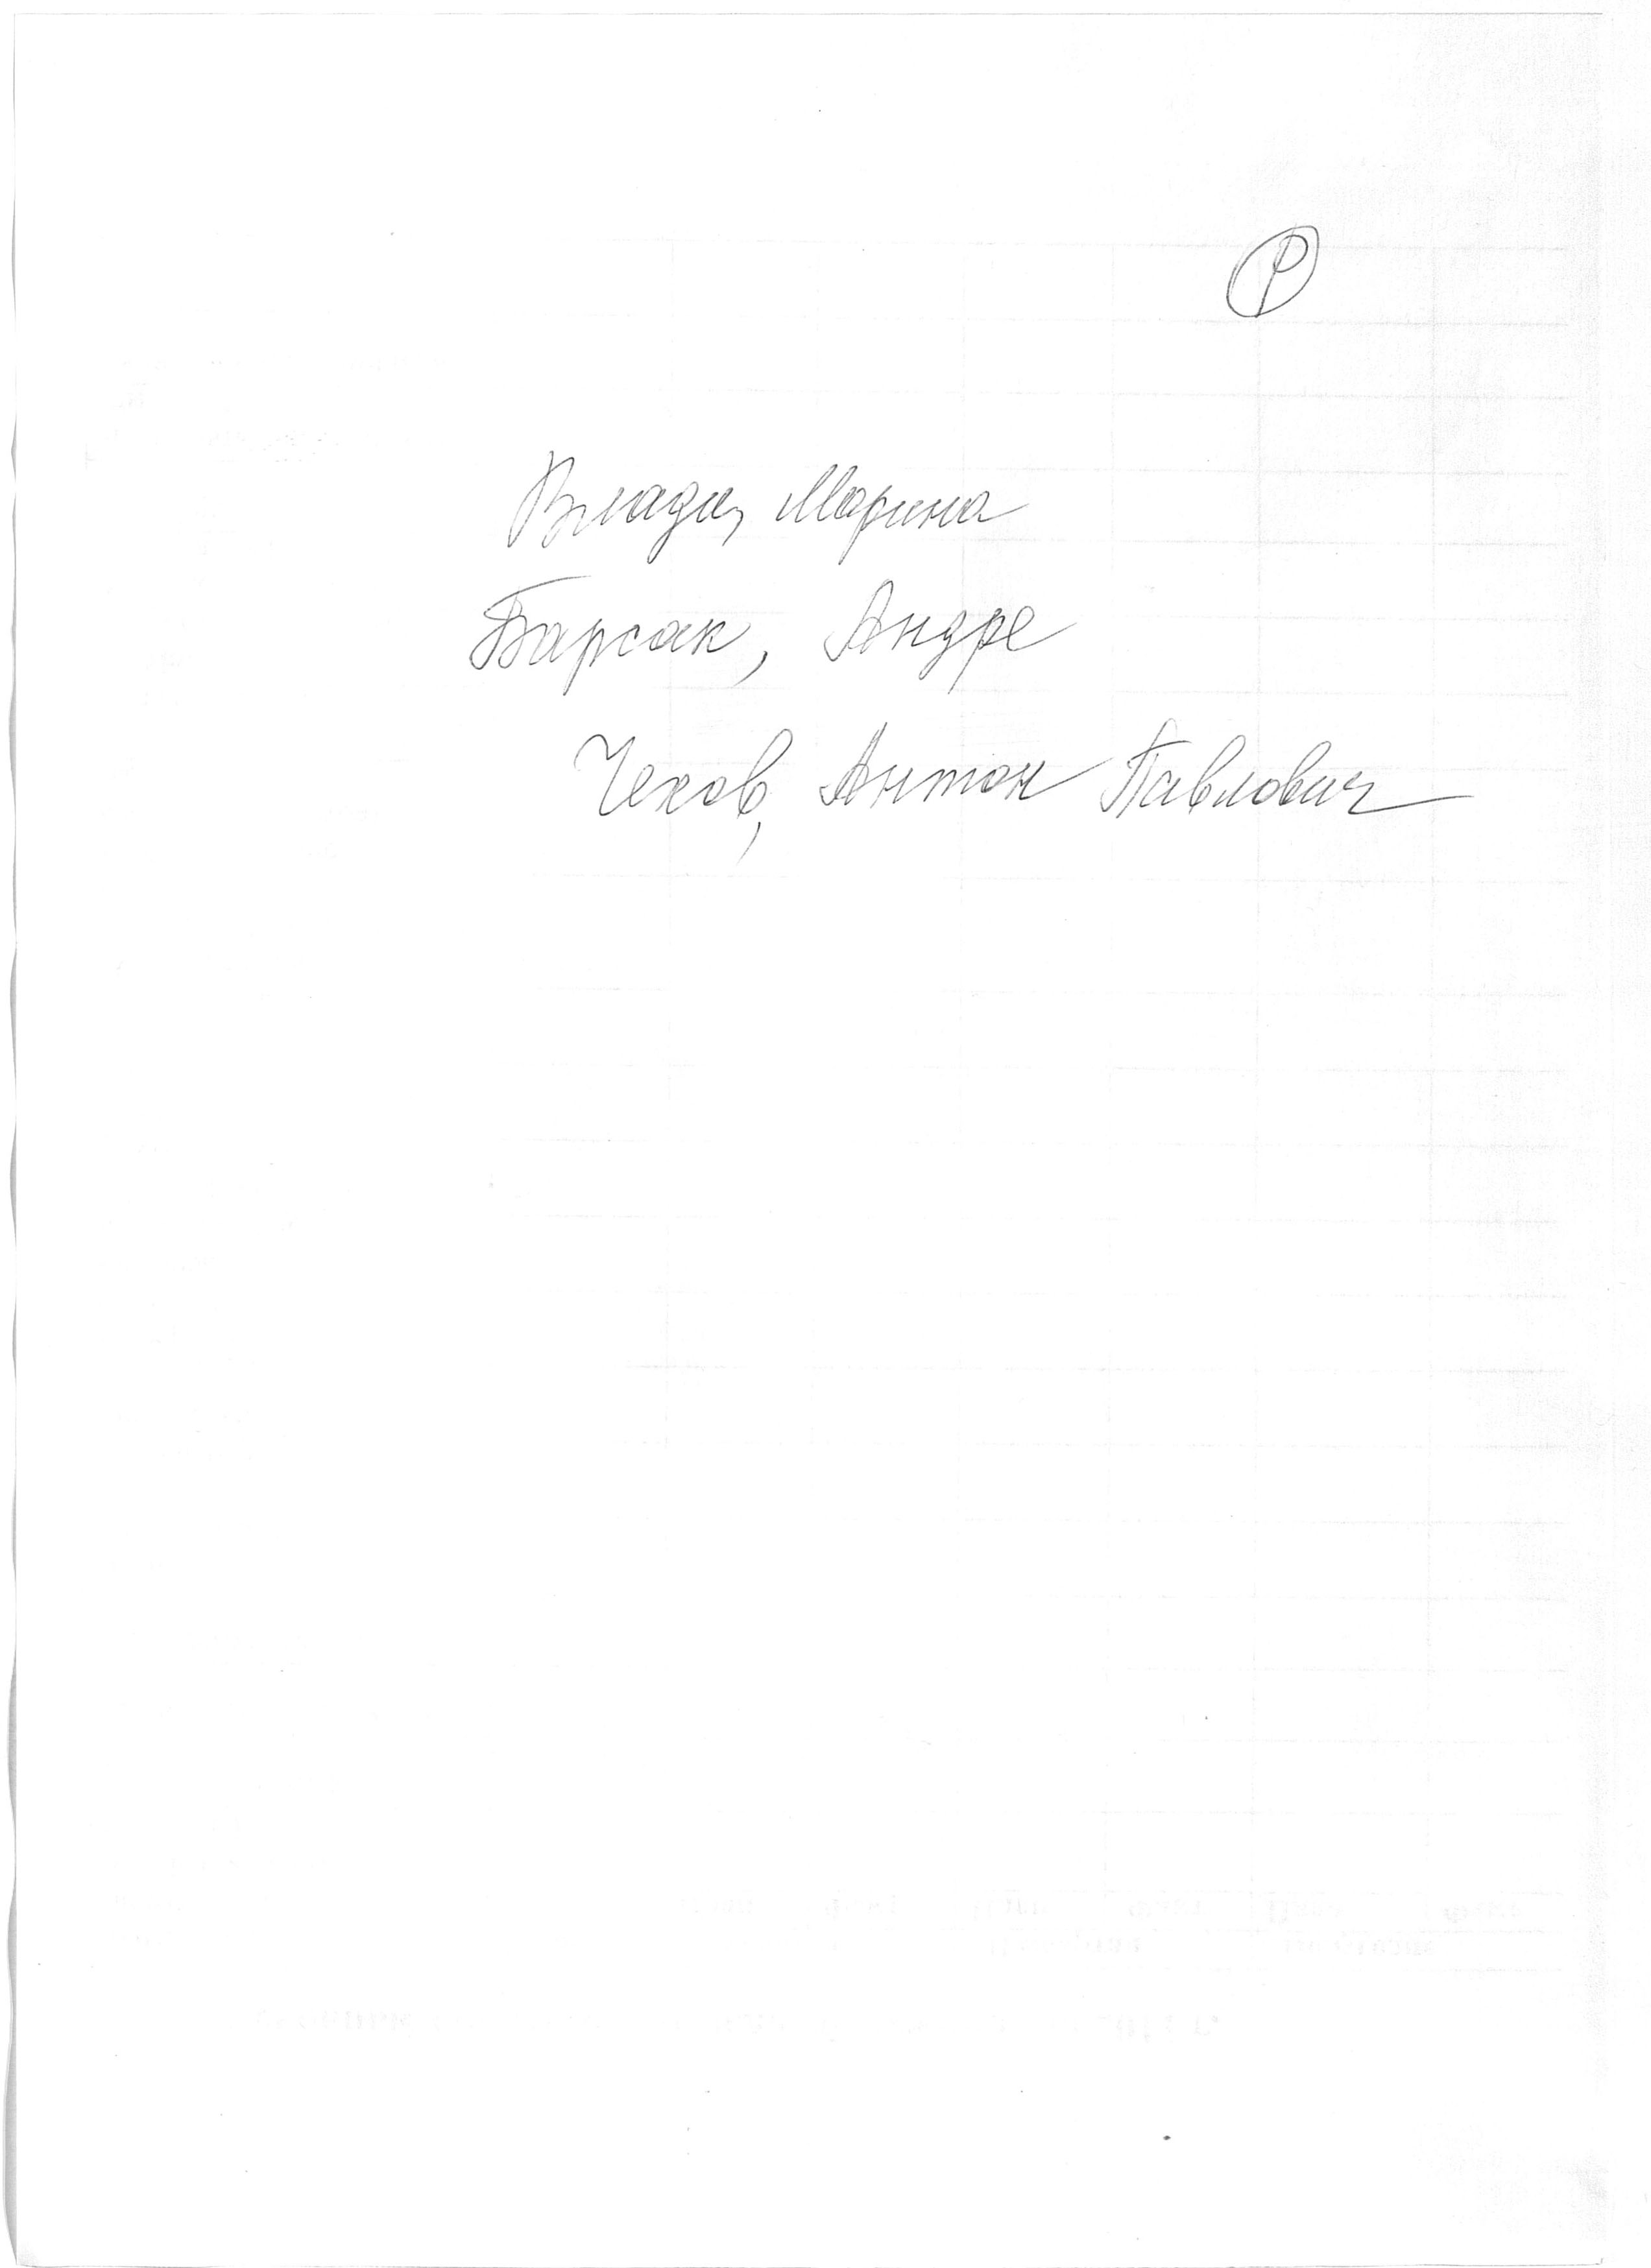 Р
Влади, Марина
Барсак, Андре
Чехов, Антон Павлович